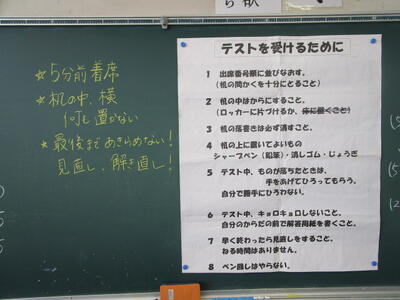 ★5分前着席
★机の中、横
何も置かない
★最後まであきらめない!
見直し、解き直し!
テストを受けるために
1 出席番号順に並びなおす。
(机の間かくを十分にとること)
2 机の中はからにすること。
(ロッカーに片づけるか、床に置くこと)
3 机の落書きは必ず消すこと。
4 机の上に置いてよいもの
シャープペン(鉛筆)・消しゴム・じょうぎ
5 テスト中、ものが落ちたときは、
手をあげてひろってもらう。
自分で勝手にひろわない。
6 テスト中、キョロキョロしないこと。
自分のからだの前で解答用紙を書くこと。
7 早く終わったら見直しをすること。
ねる時間はありません。
8 ペン回しはやらない。